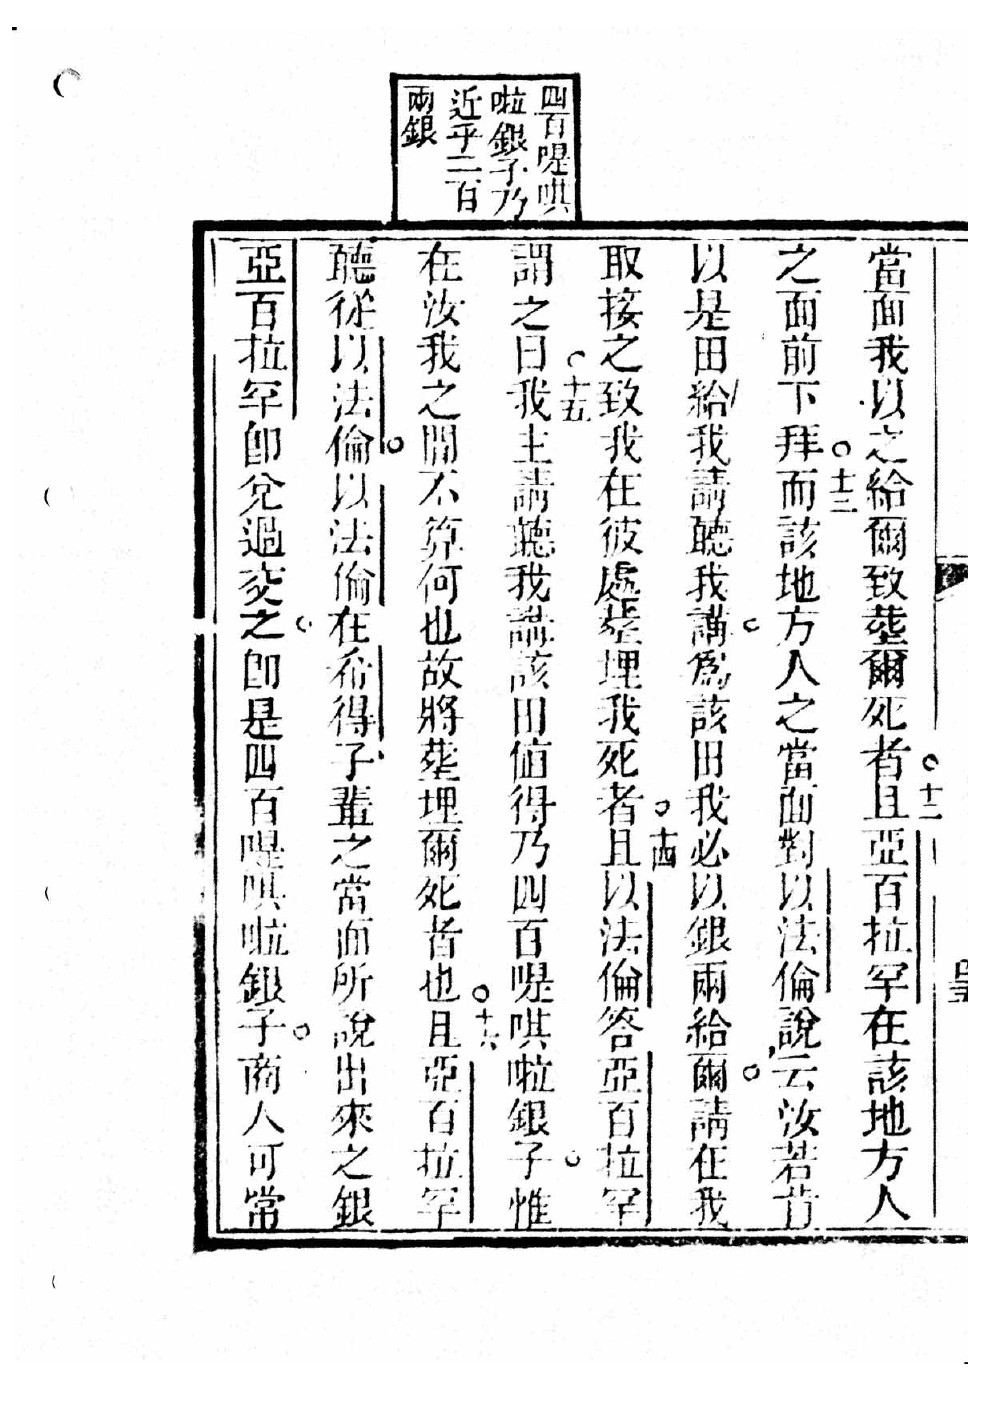 四百㖷唭
啦銀子乃
近乎二百
兩銀
當面我以之給爾致葬爾死者且亞百拉罕在該地方人
十二
之面前下拜而該地方人之當面對以法倫說云汝若肯
十三
以是田給我請聽我講爲該田我必以銀兩給爾請在我
取接之致我在彼處葬埋我死者且以法倫答亞百拉罕
十四
謂之曰我主請聽我講該田値得乃四百㖷唭啦銀子惟
十五
在汝我之間不算何也故將葬埋爾死者也且亞百拉罕
十六
聽從以法倫以法倫在希得子輩之當面所說出來之銀
亞百拉罕卽兌過交之卽是四百㖷唭啦銀子商人可常